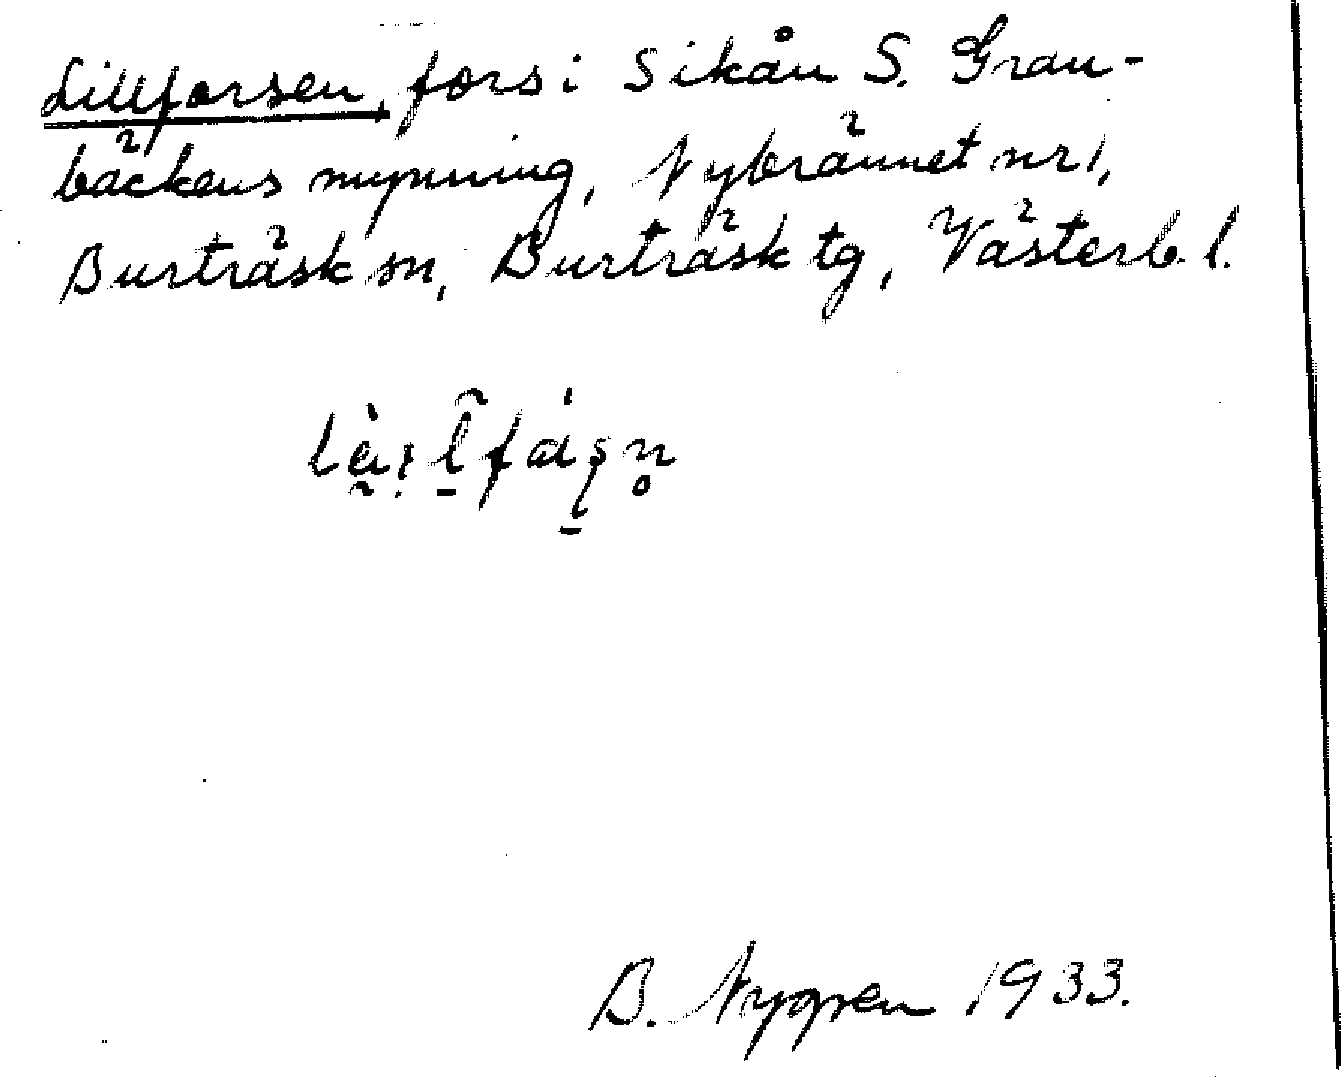 Lillforsen, fors i Sikån S. Gran-
bäckens mynning, Nybrännet nr 1,
Burträsk sn, Burträsk tg, Västerb. l.
B. Nygren 1933.